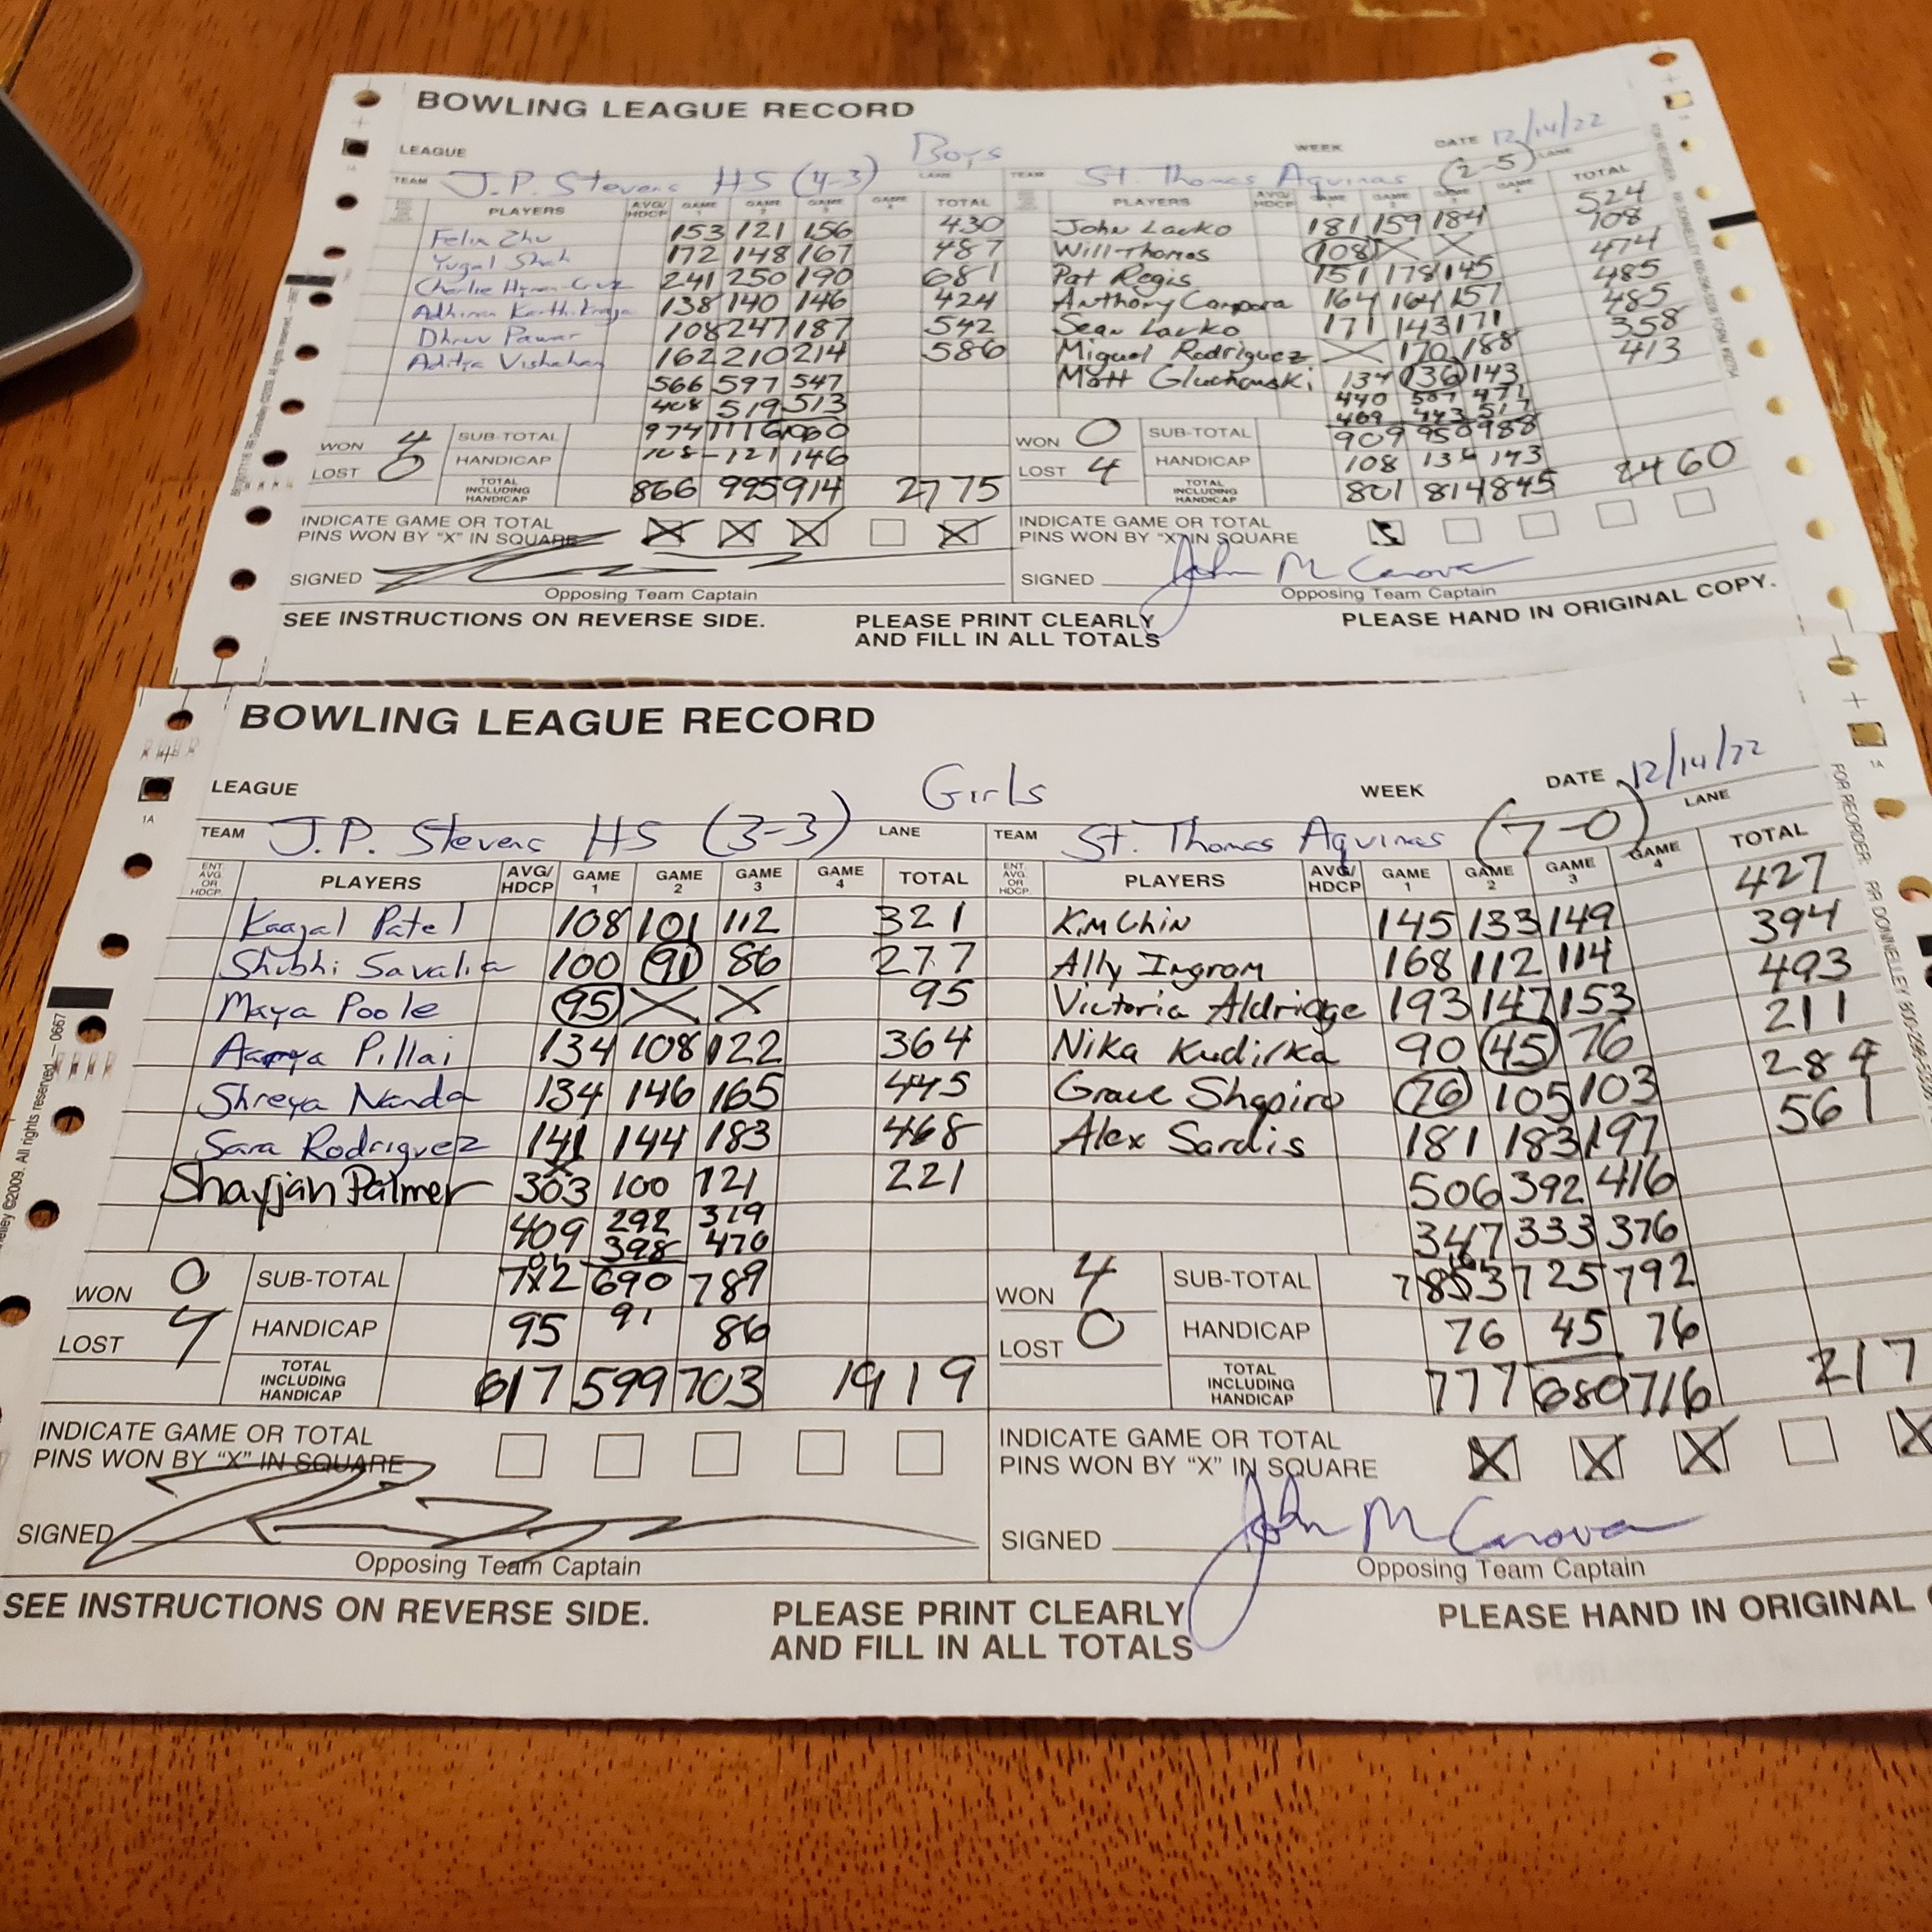 BOWLING LEAGUE RECORD
LEAGUE Boys WEEK DATE 12/14/22
TEAM J.P. Stevens HS (4-3) LANE TEAM St. Thomas Aquinas (2-5) LANE
PLAYERS AVG/HDCP GAME 1 GAME 2 GAME 3 GAME TOTAL PLAYERS AVG/HDCP GAME 1 GAME 2 GAME 3 GAME 4 TOTAL
Felix Zhu 153 121 156 430 John Lavko 181 159 184 524
Yugal Shah 172 148 167 487 Will Thomas 108 X X 108
Charlie 241 250 190 681 Pat Regis 151 178 145 474
138 140 146 424 Anthony Campora 164 164 157 485
Dhruv Pawar 108 247 187 542 Sean Lavko 171 143 171 485
Aditya 162 210 214 586 Miguel Rodriguez X 170 188 358
566 597 547 Matt 134 136 143 413
408 519 513 440 507 471
469 443 517
WON 4 SUB-TOTAL 974 1116 1060 WON 0 SUB-TOTAL 909 950 988
LOST 0 HANDICAP 108 121 146 LOST 4 HANDICAP 108 136 143
TOTAL INCLUDING HANDICAP 866 995 914 2775 TOTAL INCLUDING HANDICAP 801 814 845 2460
INDICATE GAME OR TOTAL INDICATE GAME OR TOTAL
PINS WON BY "X" IN SQUARE X X X X PINS WON BY "X" IN SQUARE
SIGNED SIGNED John M Canova
Opposing Team Captain Opposing Team Captain
SEE INSTRUCTIONS ON REVERSE SIDE. PLEASE PRINT CLEARLY PLEASE HAND IN ORIGINAL COPY.
AND FILL IN ALL TOTALS
BOWLING LEAGUE RECORD
LEAGUE Girls WEEK DATE 12/14/22
TEAM J.P. Stevens HS (3-3) LANE TEAM St. Thomas Aquinas (7-0) LANE
ENT. AVG. OR HDCP. PLAYERS AVG/HDCP GAME 1 GAME 2 GAME 3 GAME 4 TOTAL ENT. AVG. OR HDCP. PLAYERS AVG/HDCP GAME 1 GAME 2 GAME 3 GAME 4 TOTAL
Kaajal Patel 108 101 112 321 Kim Chin 145 133 149 427
Shubhi Savalia 100 91 86 277 Ally Ingram 168 112 114 394
Maya Poole 95 X X 95 Victoria Aldridge 193 147 153 493
Pillai 134 108 122 364 Nika Kudirka 90 45 76 211
Shreya Nanda 134 146 165 445 Grace Shapiro 76 105 103 284
Sara Rodriguez 141 144 183 468 Alex Sardis 181 183 197 561
Shayjah Palmer 303 100 121 221 506 392 416
409 292 319 347 333 376
398 470
WON 0 SUB-TOTAL 690 789 WON 4 SUB-TOTAL 725 792
LOST 4 HANDICAP 95 91 86 LOST 0 HANDICAP 76 45 76
TOTAL INCLUDING HANDICAP 617 599 703 1919 TOTAL INCLUDING HANDICAP 777 680 716 217
INDICATE GAME OR TOTAL INDICATE GAME OR TOTAL
PINS WON BY "X" IN SQUARE PINS WON BY "X" IN SQUARE X X X X
SIGNED SIGNED John M Canova
Opposing Team Captain Opposing Team Captain
SEE INSTRUCTIONS ON REVERSE SIDE. PLEASE PRINT CLEARLY PLEASE HAND IN ORIGINAL
AND FILL IN ALL TOTALS
FOR REORDER: RR DONNELLEY
1A
1A
©2009. All rights reserved. — 0667